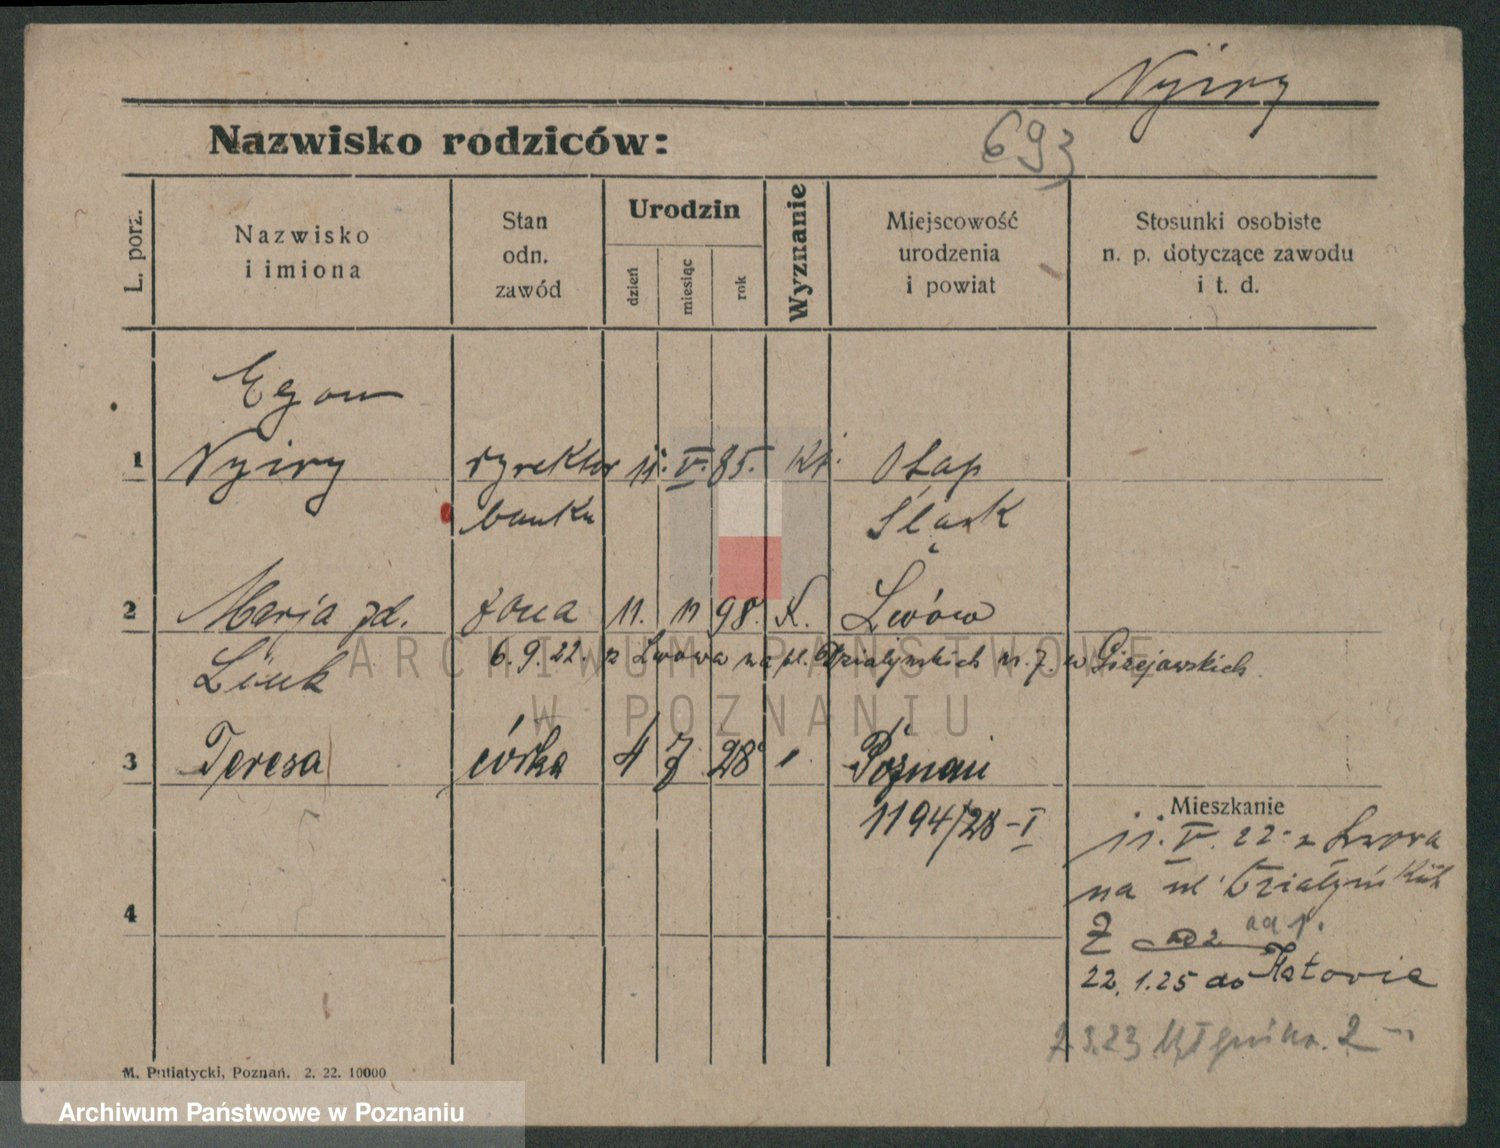 Nyiry
Nazwisko rodziców:
693
L. porz.
Nazwisko
i imiona
Stan
odn.
zawód
Urodzin
dzień
miesiąc
rok
Wyznanie
Miejscowość
urodzenia
i powiat
Stosunki osobiste
n. p. dotyczące zawodu
i t. d.
Egon
1 Nyiry dyrektor 11. V. 85. Kt. Otap
banku Śląsk
2 Marja zd. żona 11. 11 98. K. Lwów
Link 6.9.22. z Lwowa na pl. Działyńskich nr. 7. w Giżejewskich
3 Teresa córka 4 7 28 " Poznań
1194/28-I
Mieszkanie
11. V. 22 z Lwowa
na ul Działyńskich
4
Z ad 2 ad 1.
22.1.25 do Katowic
2 3.23
M. Putiatycki, Poznań. 2. 22. 10000
ARCHIWUM PAŃSTWOWE
W POZNANIU
Archiwum Państwowe w Poznaniu